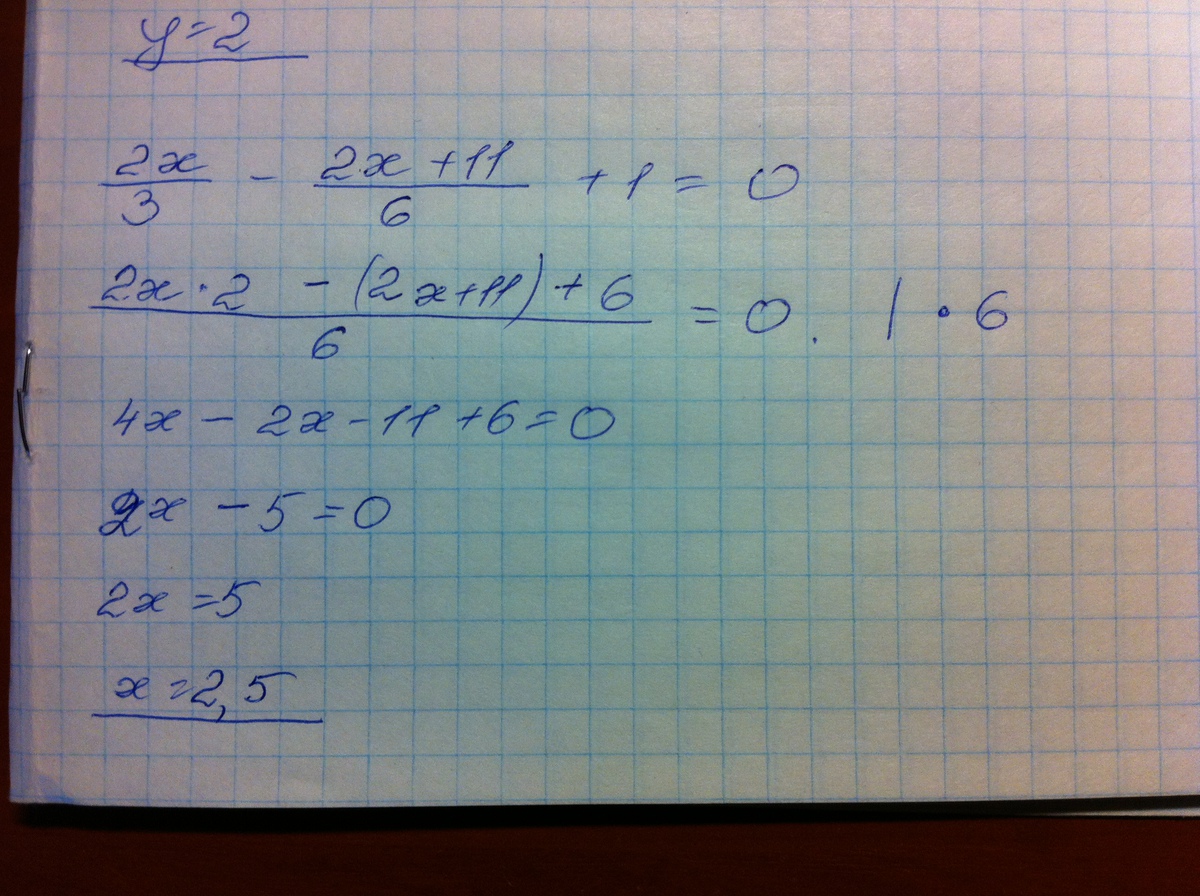 y=2
2x/3 - 2x+11/6 +1= 0
2x·2 -(2x+11)+6/6 =0. | •6
4x- 2x-11+6=0
2x -5=0
2x =5
x=2,5